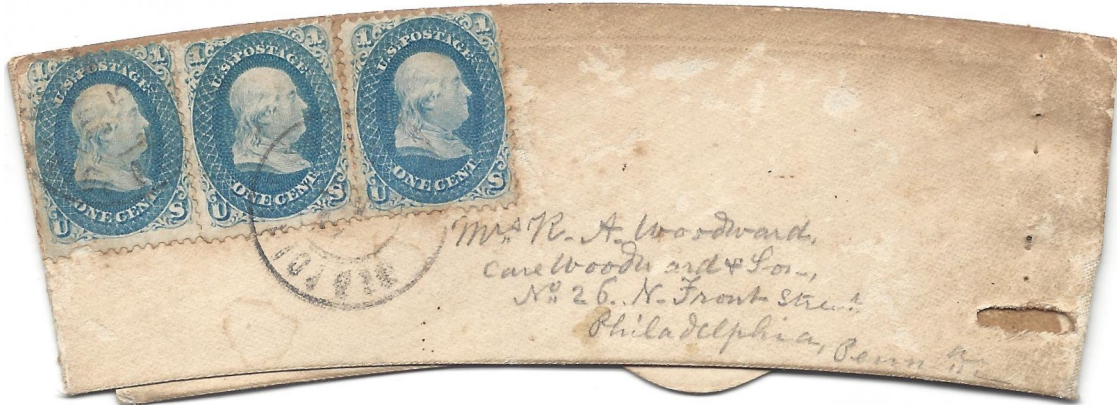 1 1
U.S. POSTAGE
ONE CENT
U S
1 1
U.S. POSTAGE
ONE CENT
U S
1 1
U.S. POSTAGE
ONE CENT
U S
Mrs R. A. Woodward,
Care Woodward & Son,
No 26. N. Front Street
Philadelphia, Penn